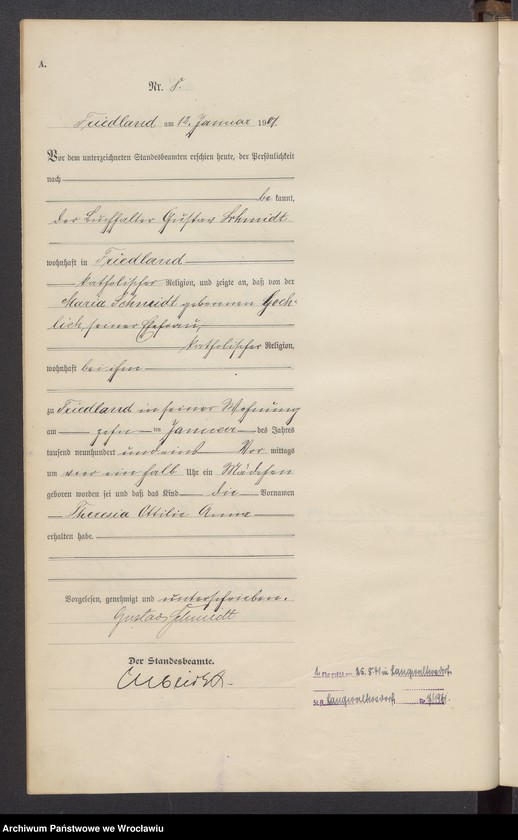 A.
Nr. 8.
Friedland am 12. Januar 1901.
Vor dem unterzeichneten Standesbeamten erschien heute, der Persönlichkeit
nach
be kannt,
der Buchhalter Gustav Schmidt
wohnhaft in Friedland
katholischer Religion, und zeigte an, daß von der
Maria Schmidt geborenen
lich, seiner Ehefrau,
katholischer Religion,
wohnhaft bei ihm
zu Friedland in seiner Wohnung
am zehn ten Januar des Jahres
tausend neunhundert und eins Vor mittags
um vier ein halb Uhr ein Mädchen
geboren worden sei und daß das Kind die Vornamen
Theresia Ottilie Anna
erhalten habe.
Vorgelesen, genehmigt und unterschrieben.
Gustav Schmidt
Der Standesbeamte.
in Langwaltersdorf
St.A. Langwaltersdorf Nr.
Archiwum Państwowe we Wrocławiu